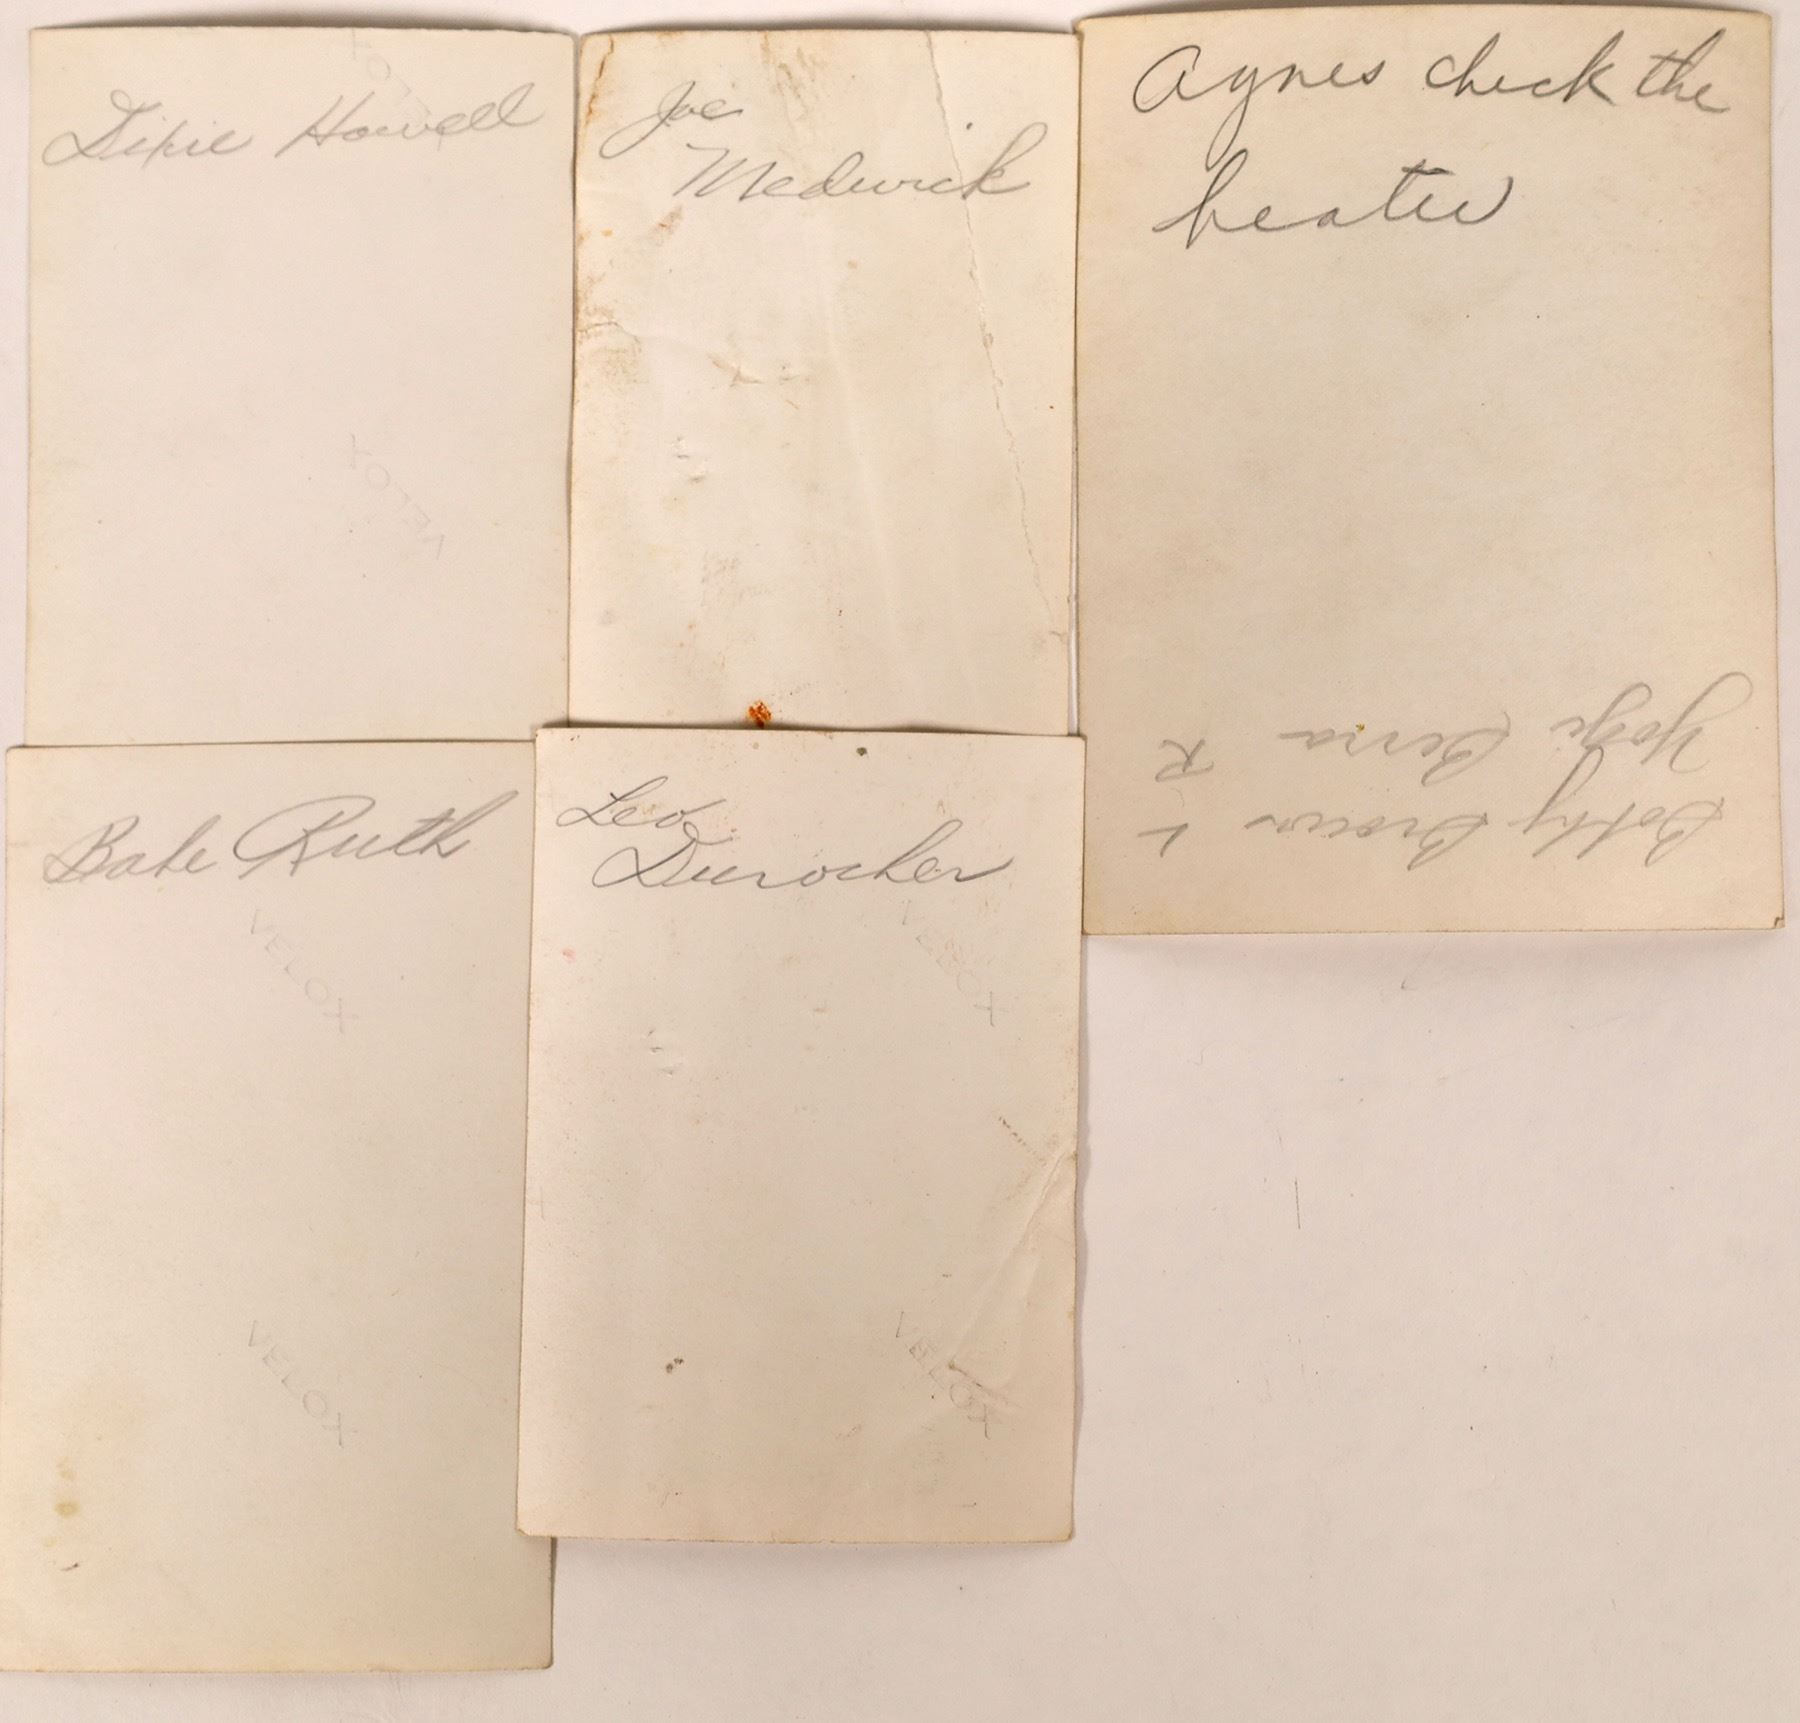 Dixie Howell
VELOX
VELOX
Joe
Medwick
Agnes check the
heater
Bobby Brown L
Yogi Berra R
Babe Ruth
VELOX
VELOX
Leo
Durocher
VELOX
VELOX